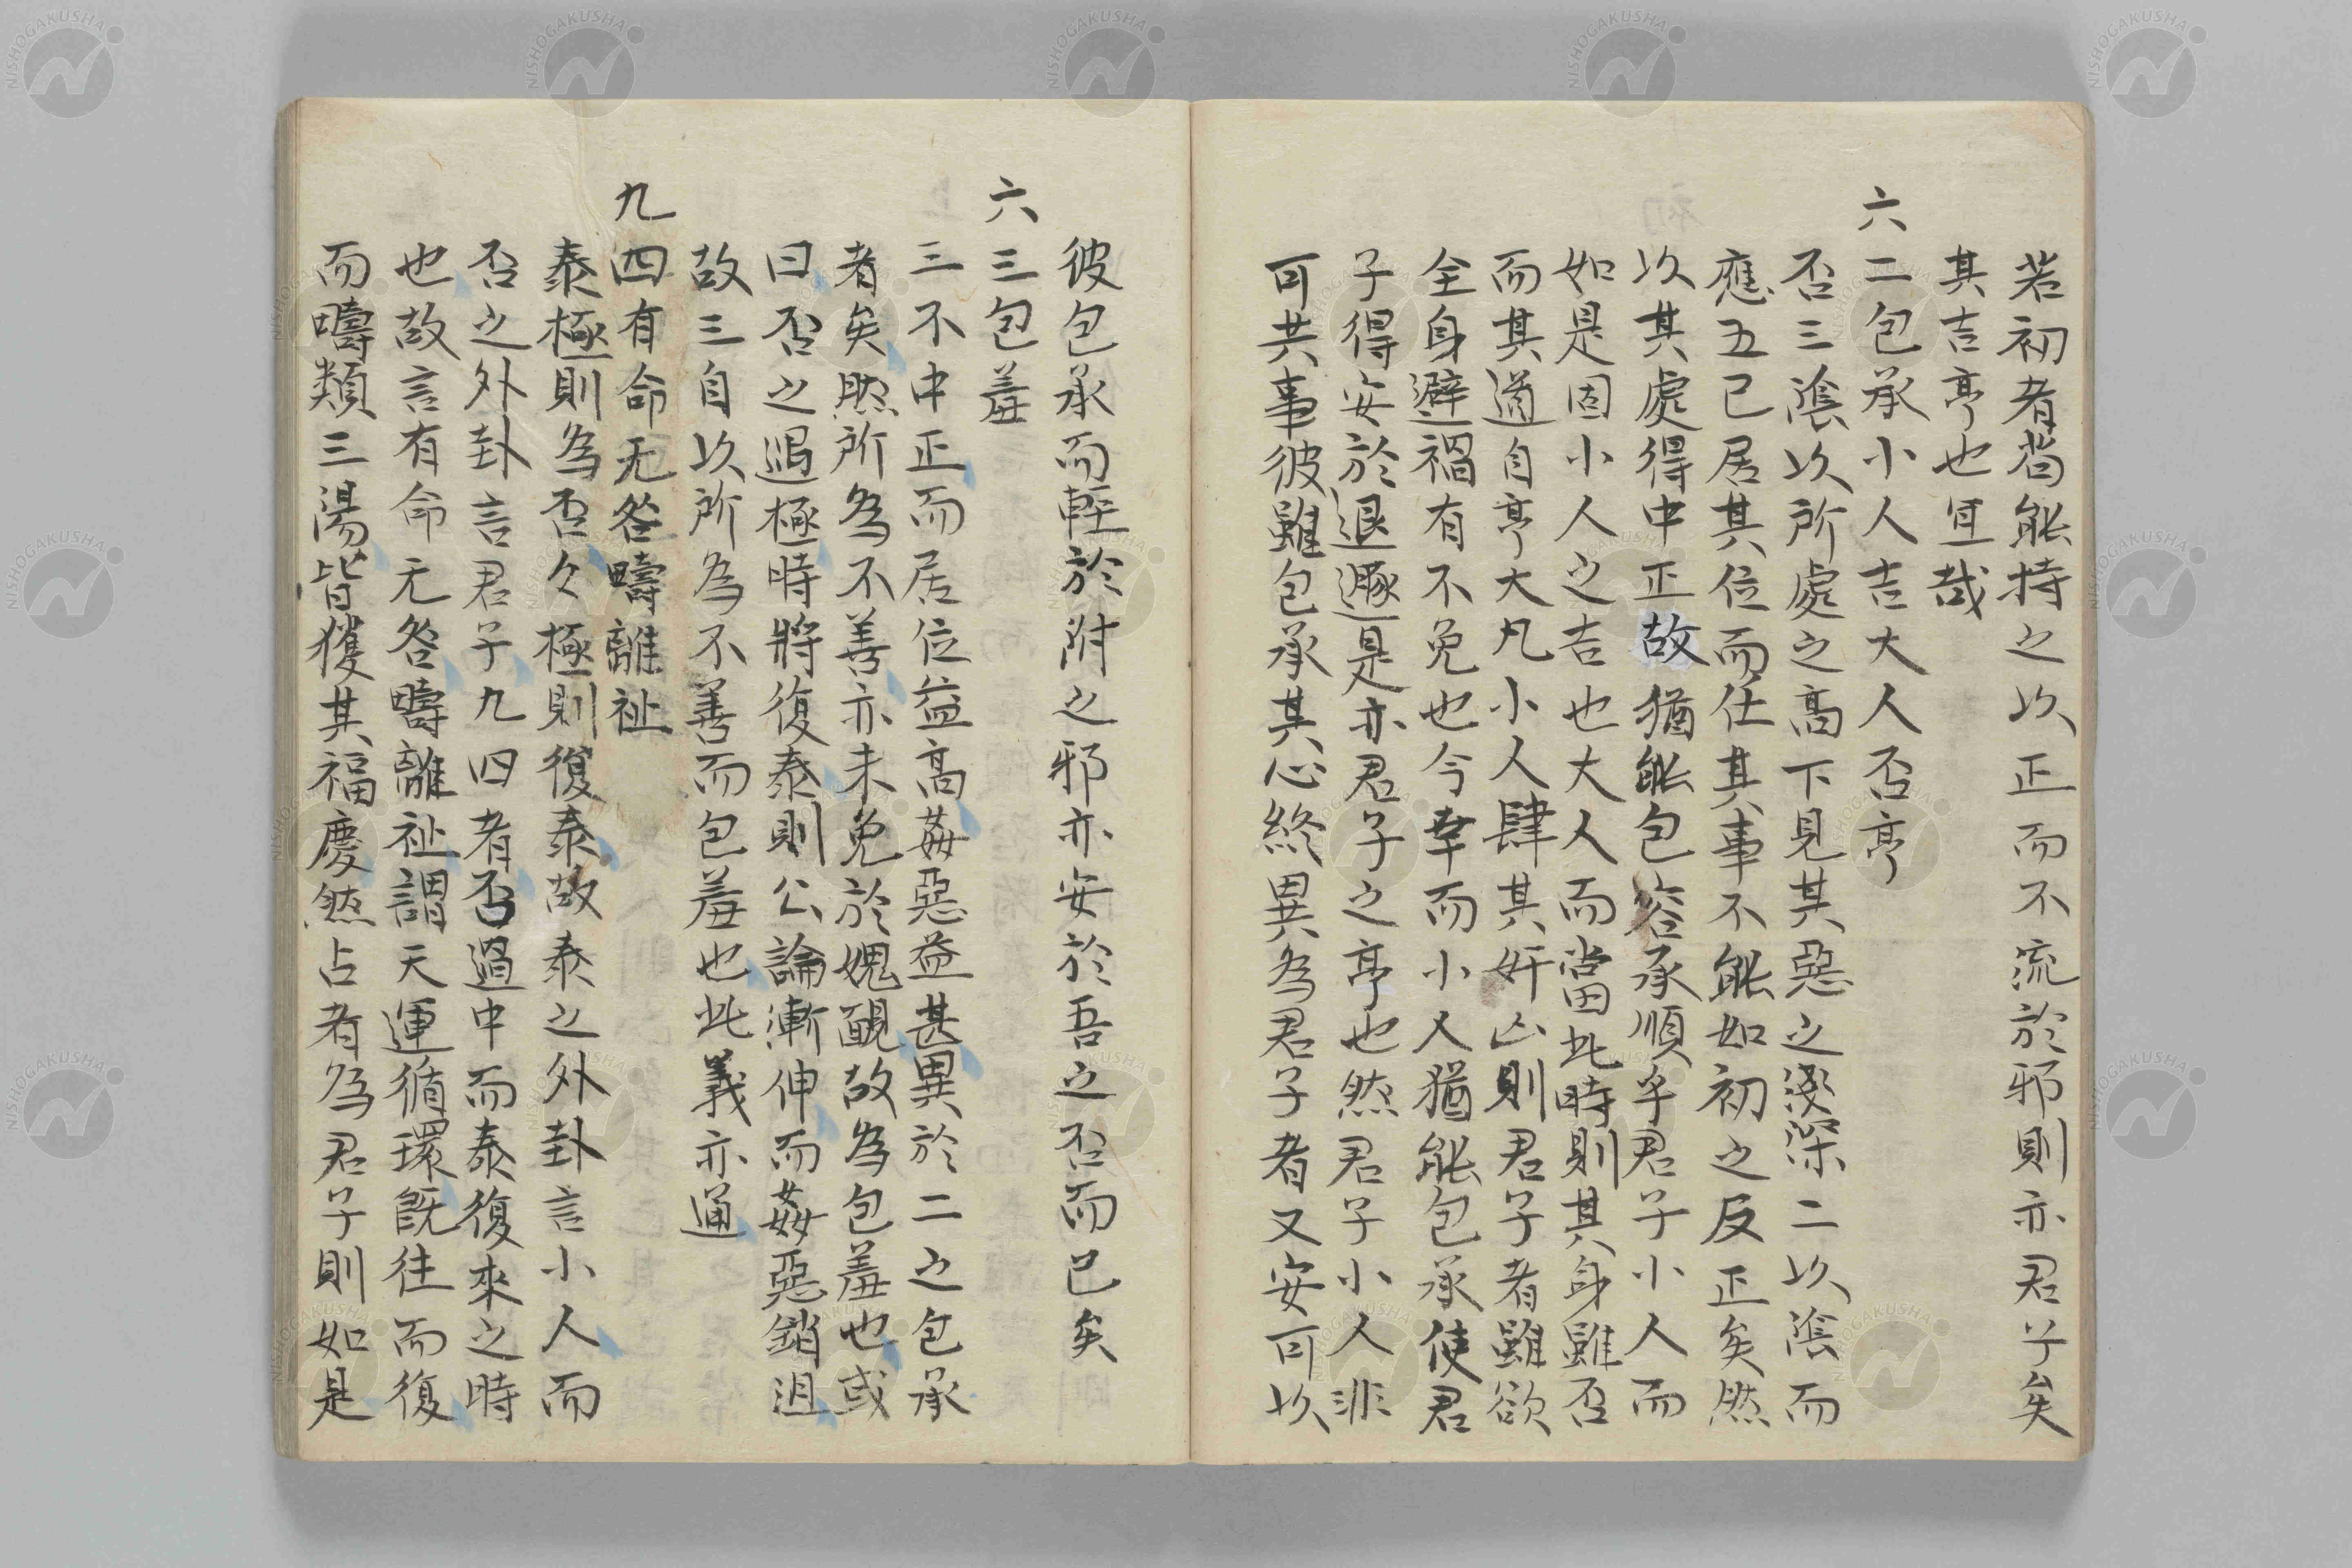 若初者苟能持之以正而不流於邪則亦君子矣
其吉亨也宜哉
六二包承小人吉大人否亨
否三陰以所處之高下見其惡之淺深二以陰而
應五已居其位而仕其事不能如初之反正矣然
以其處得中正故猶能包容承順乎君子小人而
如是固小人之吉也大人而當此時則其身雖否
而其道自亨大凡小人肆其奸凶則君子者雖欲
全身避禍有不免也今幸而小人猶能包承使君
子得安於退遯是亦君子之亨也然君子小人非
可共事彼雖包承其心終異為君子者又安可以
彼包承而輕於附之邪亦安於吾之否而已矣
六三包羞
三不中正而居位益高姦惡益甚異於二之包承
者矣然所為不善亦未免於媿靦故為包羞也或
曰否之過極時將復泰則公論漸伸而姦惡銷沮
故三自以所為不善而包羞也此義亦通
九四有命无咎疇離祉
泰極則為否々極則復泰故泰之外卦言小人而
否之外卦言君子九四者否過中而泰復來之時
也故言有命无咎疇離祉謂天運循環既往而復
而疇類三陽皆獲其福慶然占者為君子則如是
NISHOGAKUSHA